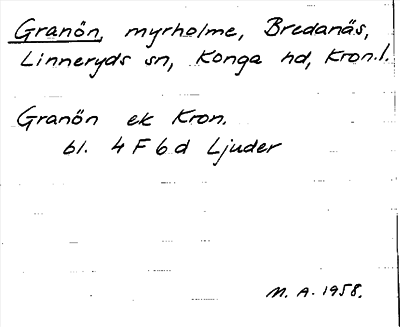 Granön, myrholme, Bredanäs,
Linneryds sn, Konga hd, Kron.l.
Granön ek Kron.
bl. 4 F 6 d Ljuder
M. A. 1958.